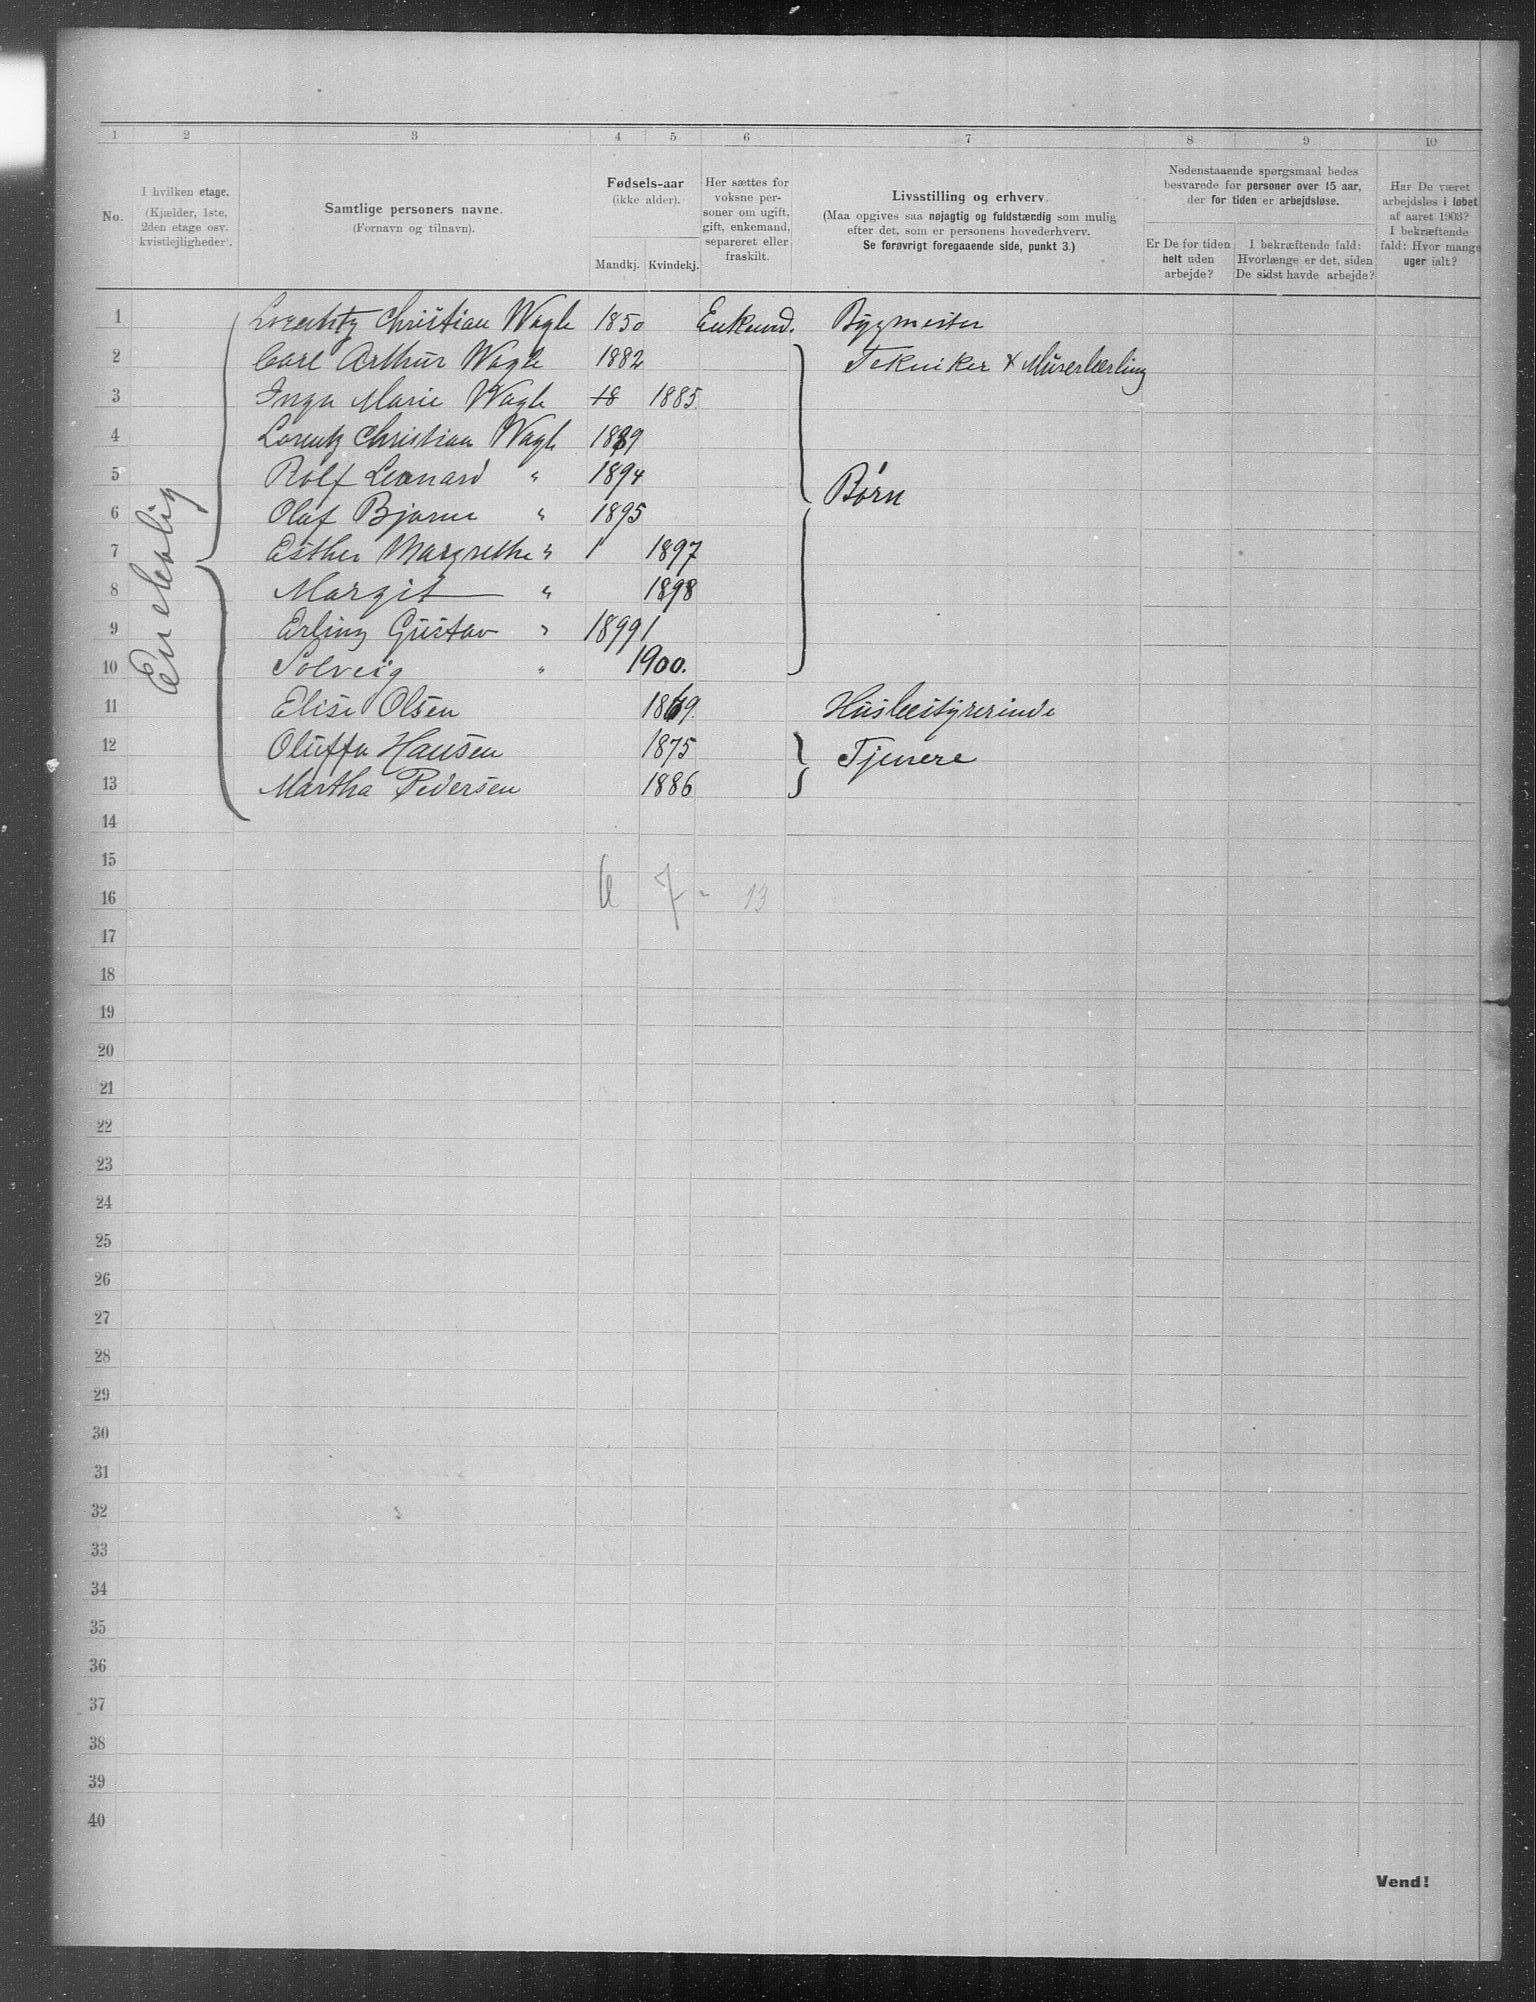 1 2 3 4 5 6 7 8 9 10
No.
I hvilken etage.
(Kjælder, 1ste,
2den etage osv.
kvistlejligheder).
Samtlige personers navne.
(Fornavn og tilnavn).
Fødsels-aar
(ikke alder).
Mandkj. Kvindekj.
Her sættes for
voksne per-
soner om ugift,
gift, enkemand,
separeret eller
fraskilt.
Livsstilling og erhverv.
(Maa opgives saa nøjagtig og fuldstændig som mulig
efter det, som er personens hovederhverv.
Se forøvrigt foregaaende side, punkt 3.)
Nedenstaaende spørgsmaal bedes
besvarede for personer over 15 aar,
der for tiden er arbejdsløse.
Er De for tiden
helt uden
arbejde?
I bekræftende fald:
Hvorlænge er det, siden
De sidst havde arbejde?
Har De været
arbejdsløs i løbet
af aaret 1903?
I bekræftende
fald: Hvor mange
uger ialt?
Enebolig
1 Lorentz Christian Wagle 1850 Enkemd. Bygmester
2 Carl Arthur Wagle 1882 Tekniker & Murerlærling
3 Inga Marie Wagle 18 1885
4 Lorentz Christian Wagle 1889
5 Rolf Leonard " 1894 Børn
6 Olaf Bjarne " 1895
7 Esther Margrethe " 1 1897
8 Margit " 1898
9 Erling Gustav " 1899 1
10 Solveig " 1900.
11 Elise Olsen 1869. Husbestyrerinde
12 Oluffa Hansen 1875 Tjenere
13 Martha Pedersen 1886
14
15
16 6 7 - 13
17
18
19
20
21
22
23
24
25
26
27
28
29
30
31
32
33
34
35
36
37
38
39
40
Vend!